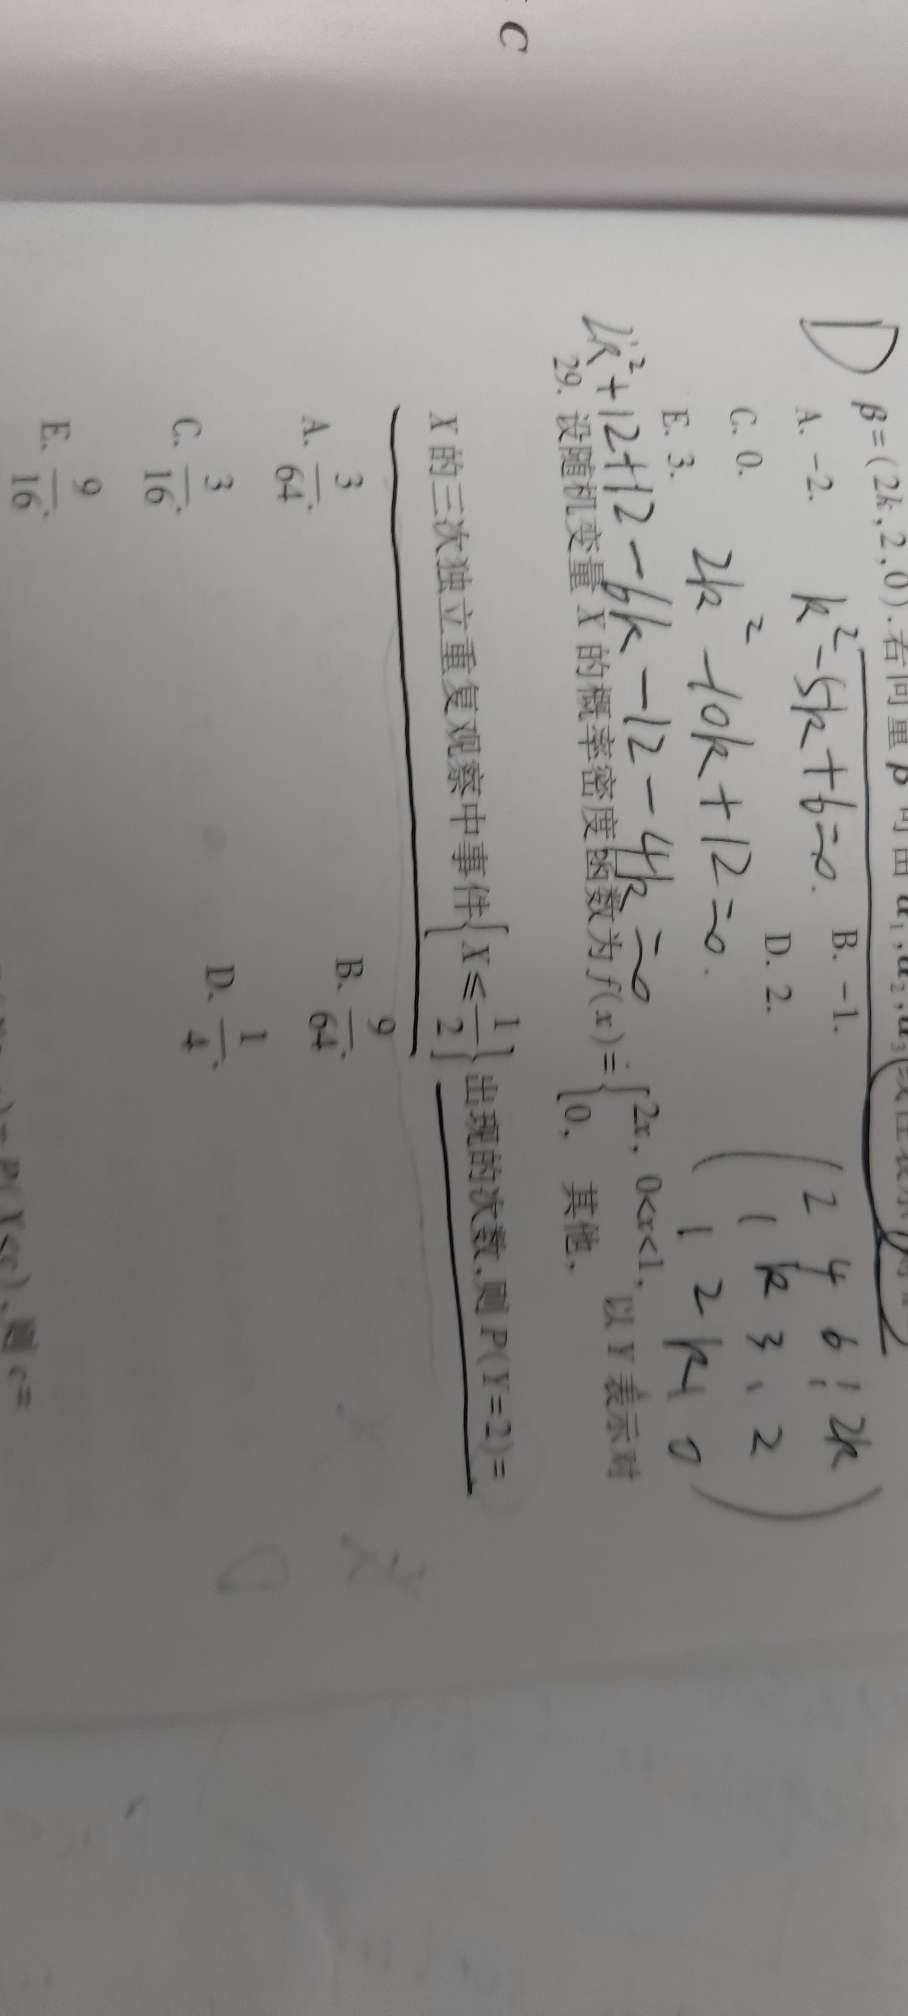 C
D β=(2k,2,0).若向量β可由α₁,α₂,α₃
A. -2. B. -1.
k²-5k+6=0.
C. 0. D. 2.
2k²-10k+12=0.
E. 3.
2k²+12+12-6k-12-4k=0
2 4 6 2k
1 k 3 2
1 2 k 0
29. 设随机变量 X 的概率密度函数为 f(x)={2x, 0<x<1, 0, 其他, 以 Y 表示对
X 的三次独立重复观察中事件{X≤1/2}出现的次数,则 P(Y=2)=
A. 3/64. B. 9/64.
C. 3/16. D. 1/4.
E. 9/16.
P(X<c),则 c=